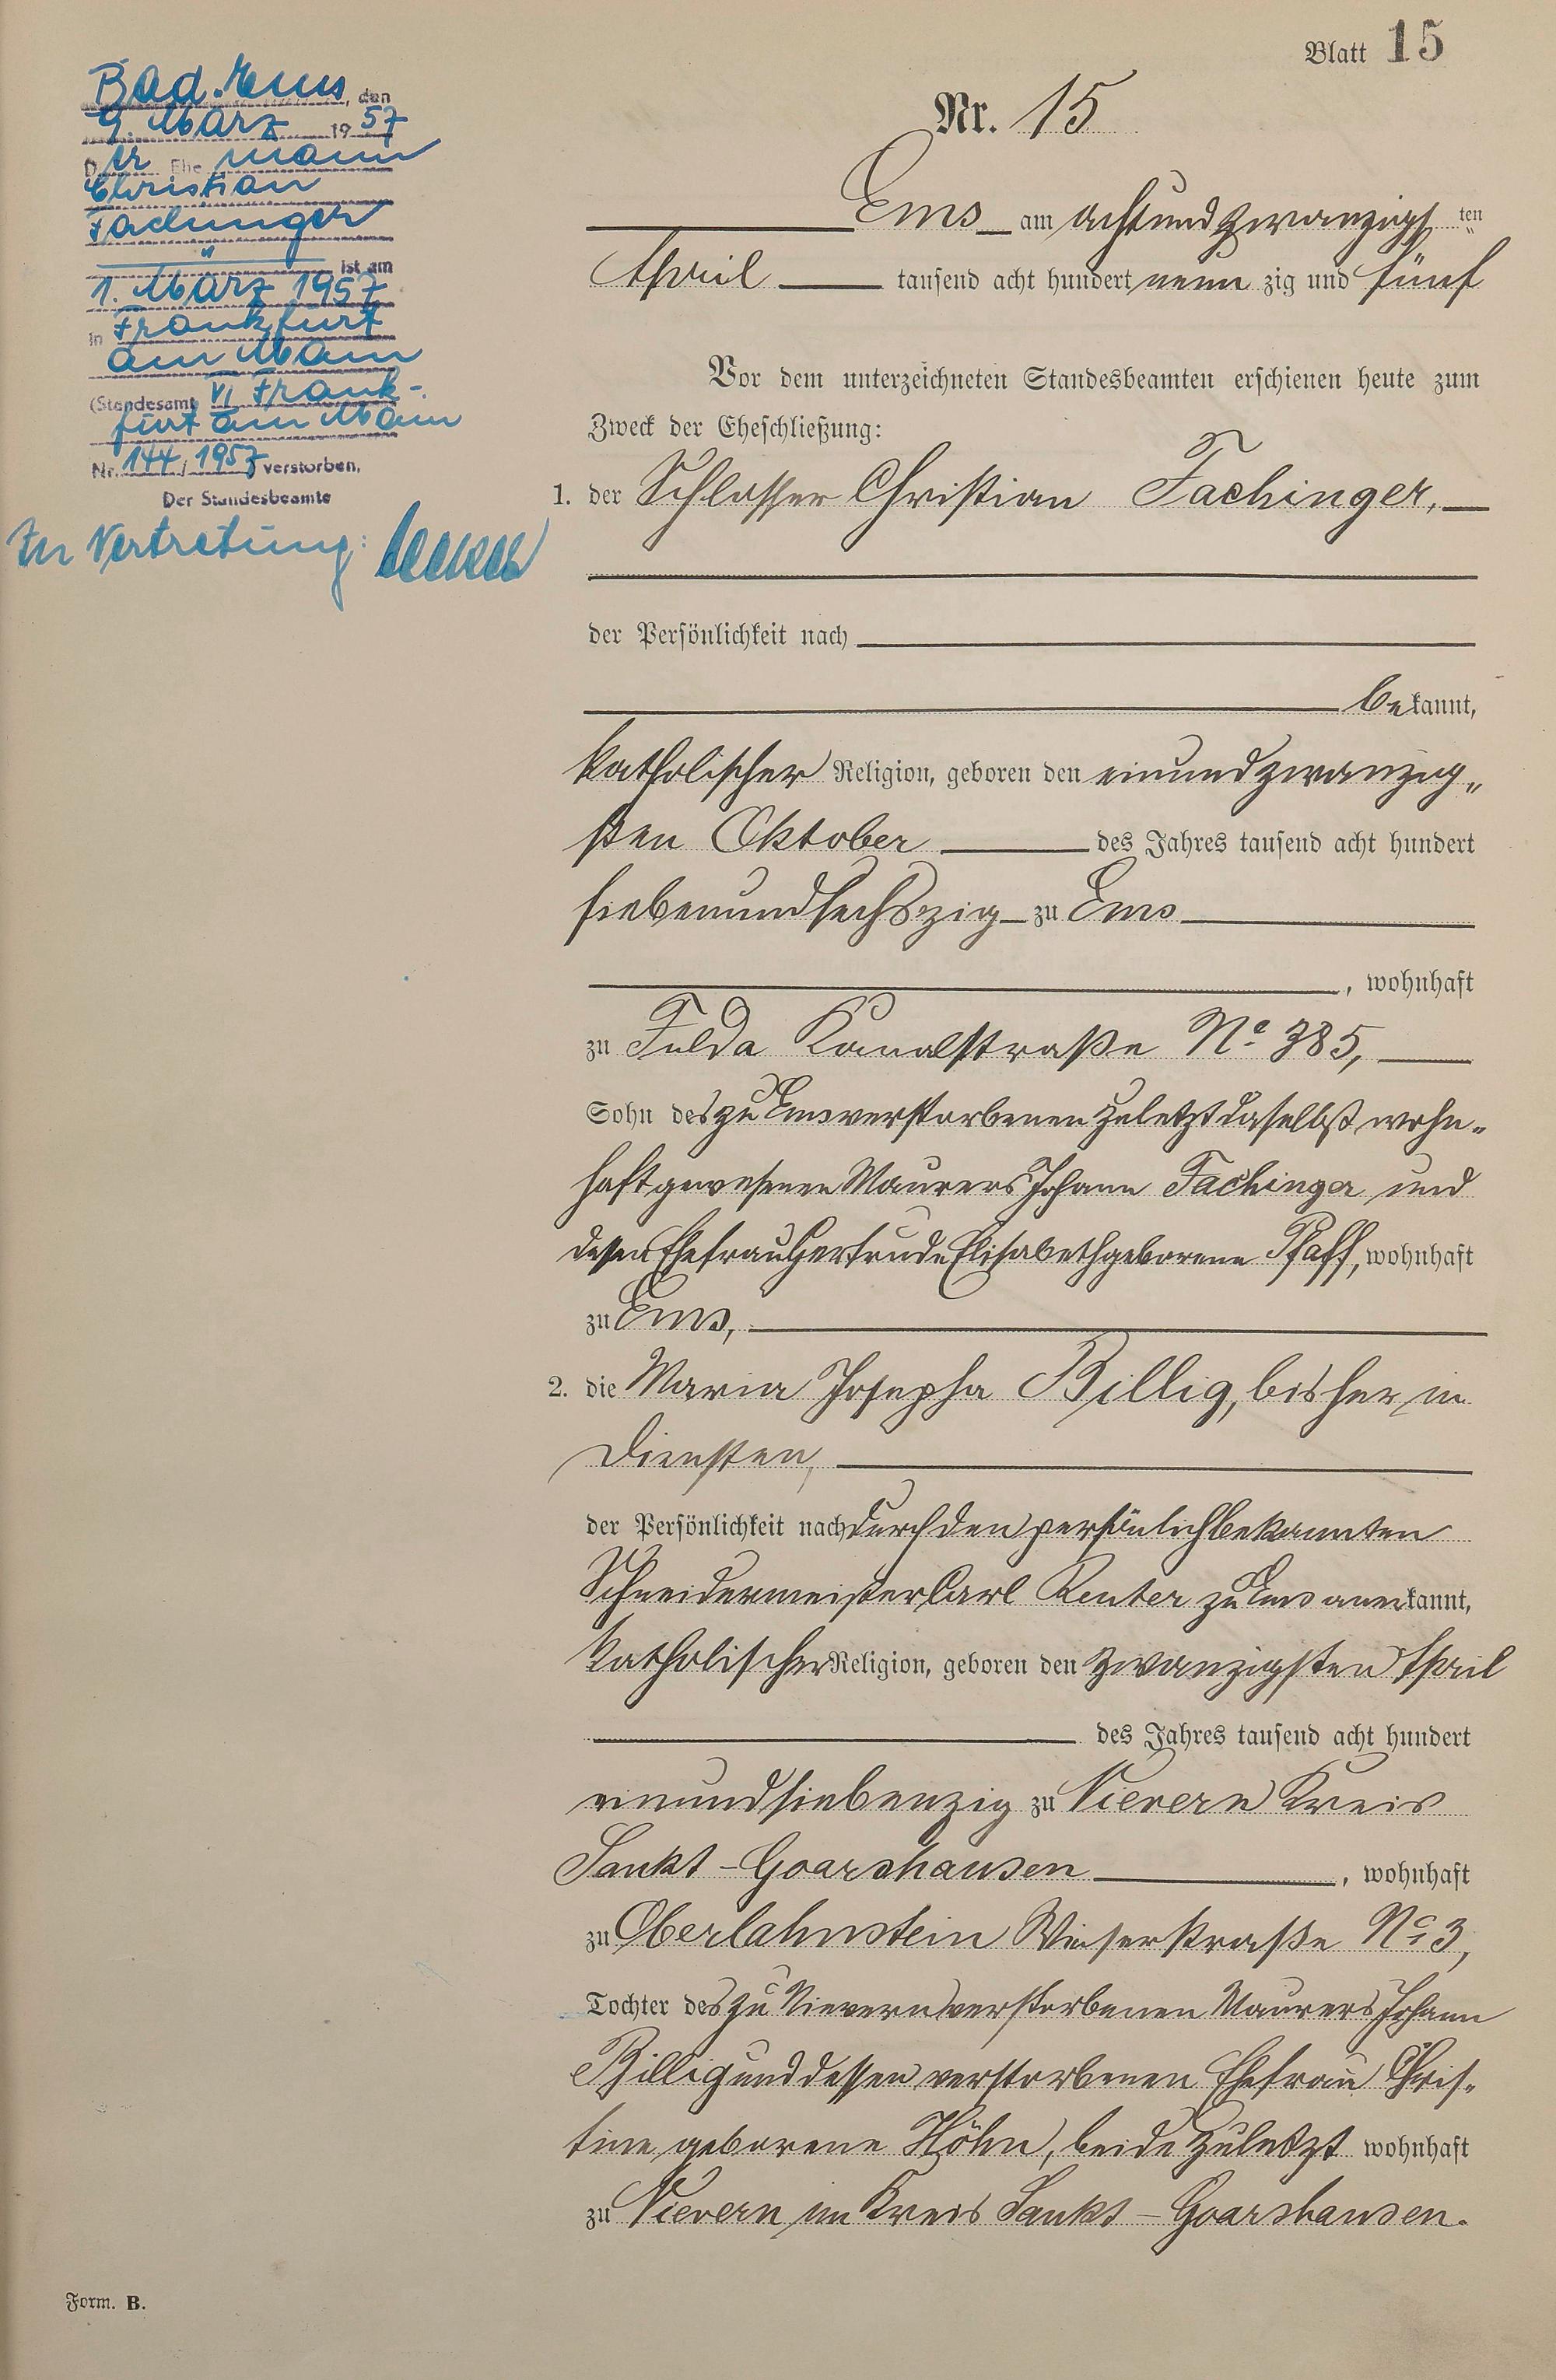 Blatt 15
Nr. 15
Bad Ems, den
9. März 1957
Der Ehemann
Christian
Fachinger
ist am
1. März 1957
in Frankfurt
am Main
(Standesamt VI Frank-
furt am Main
Nr. 144/1957 verstorben.
Der Standesbeamte
In Vertretung:
Ems am achtundzwanzigsten
April tausend acht hundert neunzig und fünf
Vor dem unterzeichneten Standesbeamten erschienen heute zum
Zweck der Eheschließung:
1. der Schlosser Christian Fachinger,
der Persönlichkeit nach
bekannt,
katholischer Religion, geboren den einundzwanzig-
sten Oktober des Jahres tausend acht hundert
siebenundsechszig zu Ems
, wohnhaft
zu Fulda Kanalstraße No 385,
Sohn des zu Ems verstorbenen zuletzt daselbst wohn-
haft gewesenen Maurers Johann Fachinger und
dessen Ehefrau Gertrude Elisabeth geborene Pfaff, wohnhaft
zu Ems,
2. die Maria Josepha Billig, bisher in
Diensten,
der Persönlichkeit nach durch den persönlich bekannten
Schneidermeister Carl Reuter zu Ems anerkannt,
katholischer Religion, geboren den zwanzigsten April
des Jahres tausend acht hundert
einundsiebenzig zu Nievern Kreis
Sankt-Goarshausen, wohnhaft
zu Oberlahnstein Wieserstraße No 3,
Tochter des zu Nievern verstorbenen Maurers Johann
Billig und dessen verstorbenen Ehefrau Chris-
tine geborene Höhn, beide zuletzt wohnhaft
zu Nievern im Kreis Sankt-Goarshausen.
Form. B.